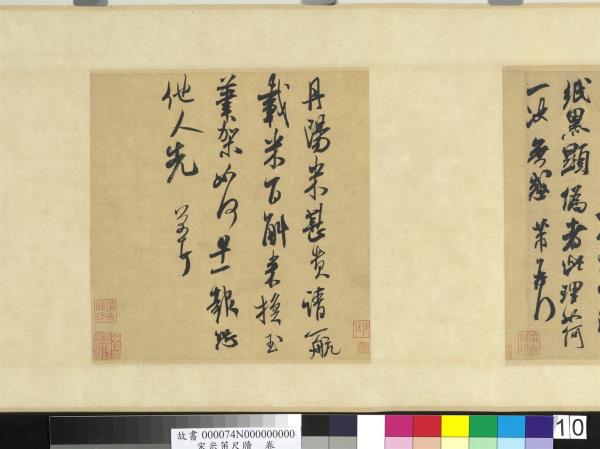 紙黑顯偽者此理如何
一決無惑 芾頓首
丹陽米甚貴請一航
載米百斛來換玉
筆架如何早一報恐
他人先 芾頓首
故書 000074N000000000
宋米芾尺牘 卷
10